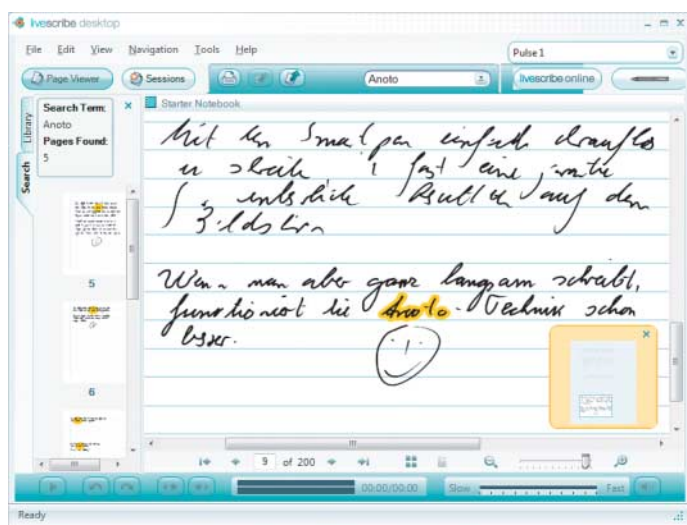 livescribe desktop
File Edit View Navigation Tools Help
Pulse 1
Page Viewer Sessions Anoto livescribe online
Library
Search
Search Term:
Anoto
Pages Found:
5
5
6
Starter Notebook
Mit dem Smartpen einfach drauflos
zu 
fast eine 
auf dem
Bildschirm
Wenn man aber ganz langsam schreibt,
funktioniert die Anoto-Technik schon
besser.
9 of 200
00:00/00:00 Slow Fast
Ready